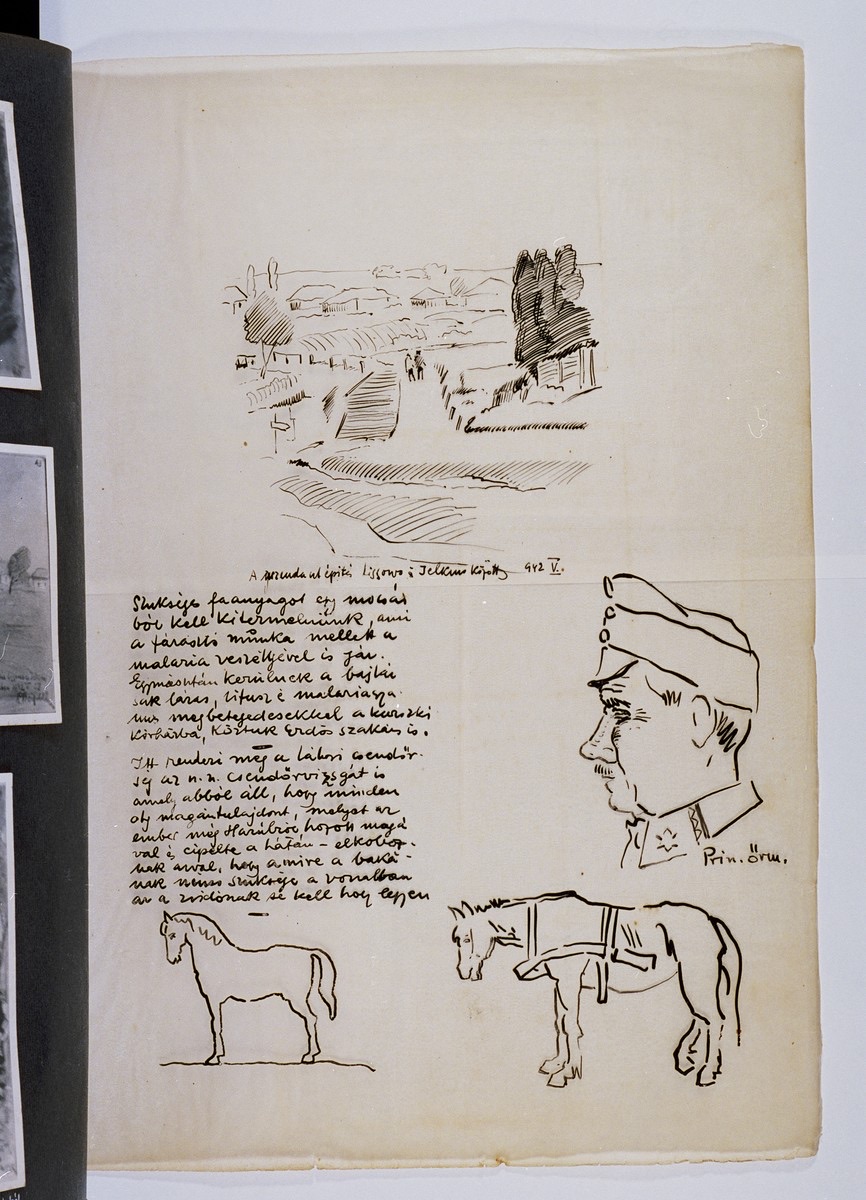 A rozenda ut építés Lissowo és Jelkino között 942 V.
Szükséges faanyagot egy mocsár
ból kell kitermelnünk, ami
a fárasztó munka mellett a
malaria veszélyével is jár.
Egymásután kerülnek a bajtár
sak lázas, tifusz é malariagya
nus megbetegedésekkel a kurszki
kórházba, köztük Erdős szakács is.
Itt rendezi meg a tábori csendőr-
ség az u.n. csendőrvizsgát is
amely abból áll, hogy minden
oly magántulajdont, melyet az
ember még Harúbról hozott magá
val és cipelte a hátán – elkoboz-
nak azval, hogy amire a baká-
nak nincs szüksége a vonalban
az a zsidónak se kell hogy legyen
Prin. őrm.